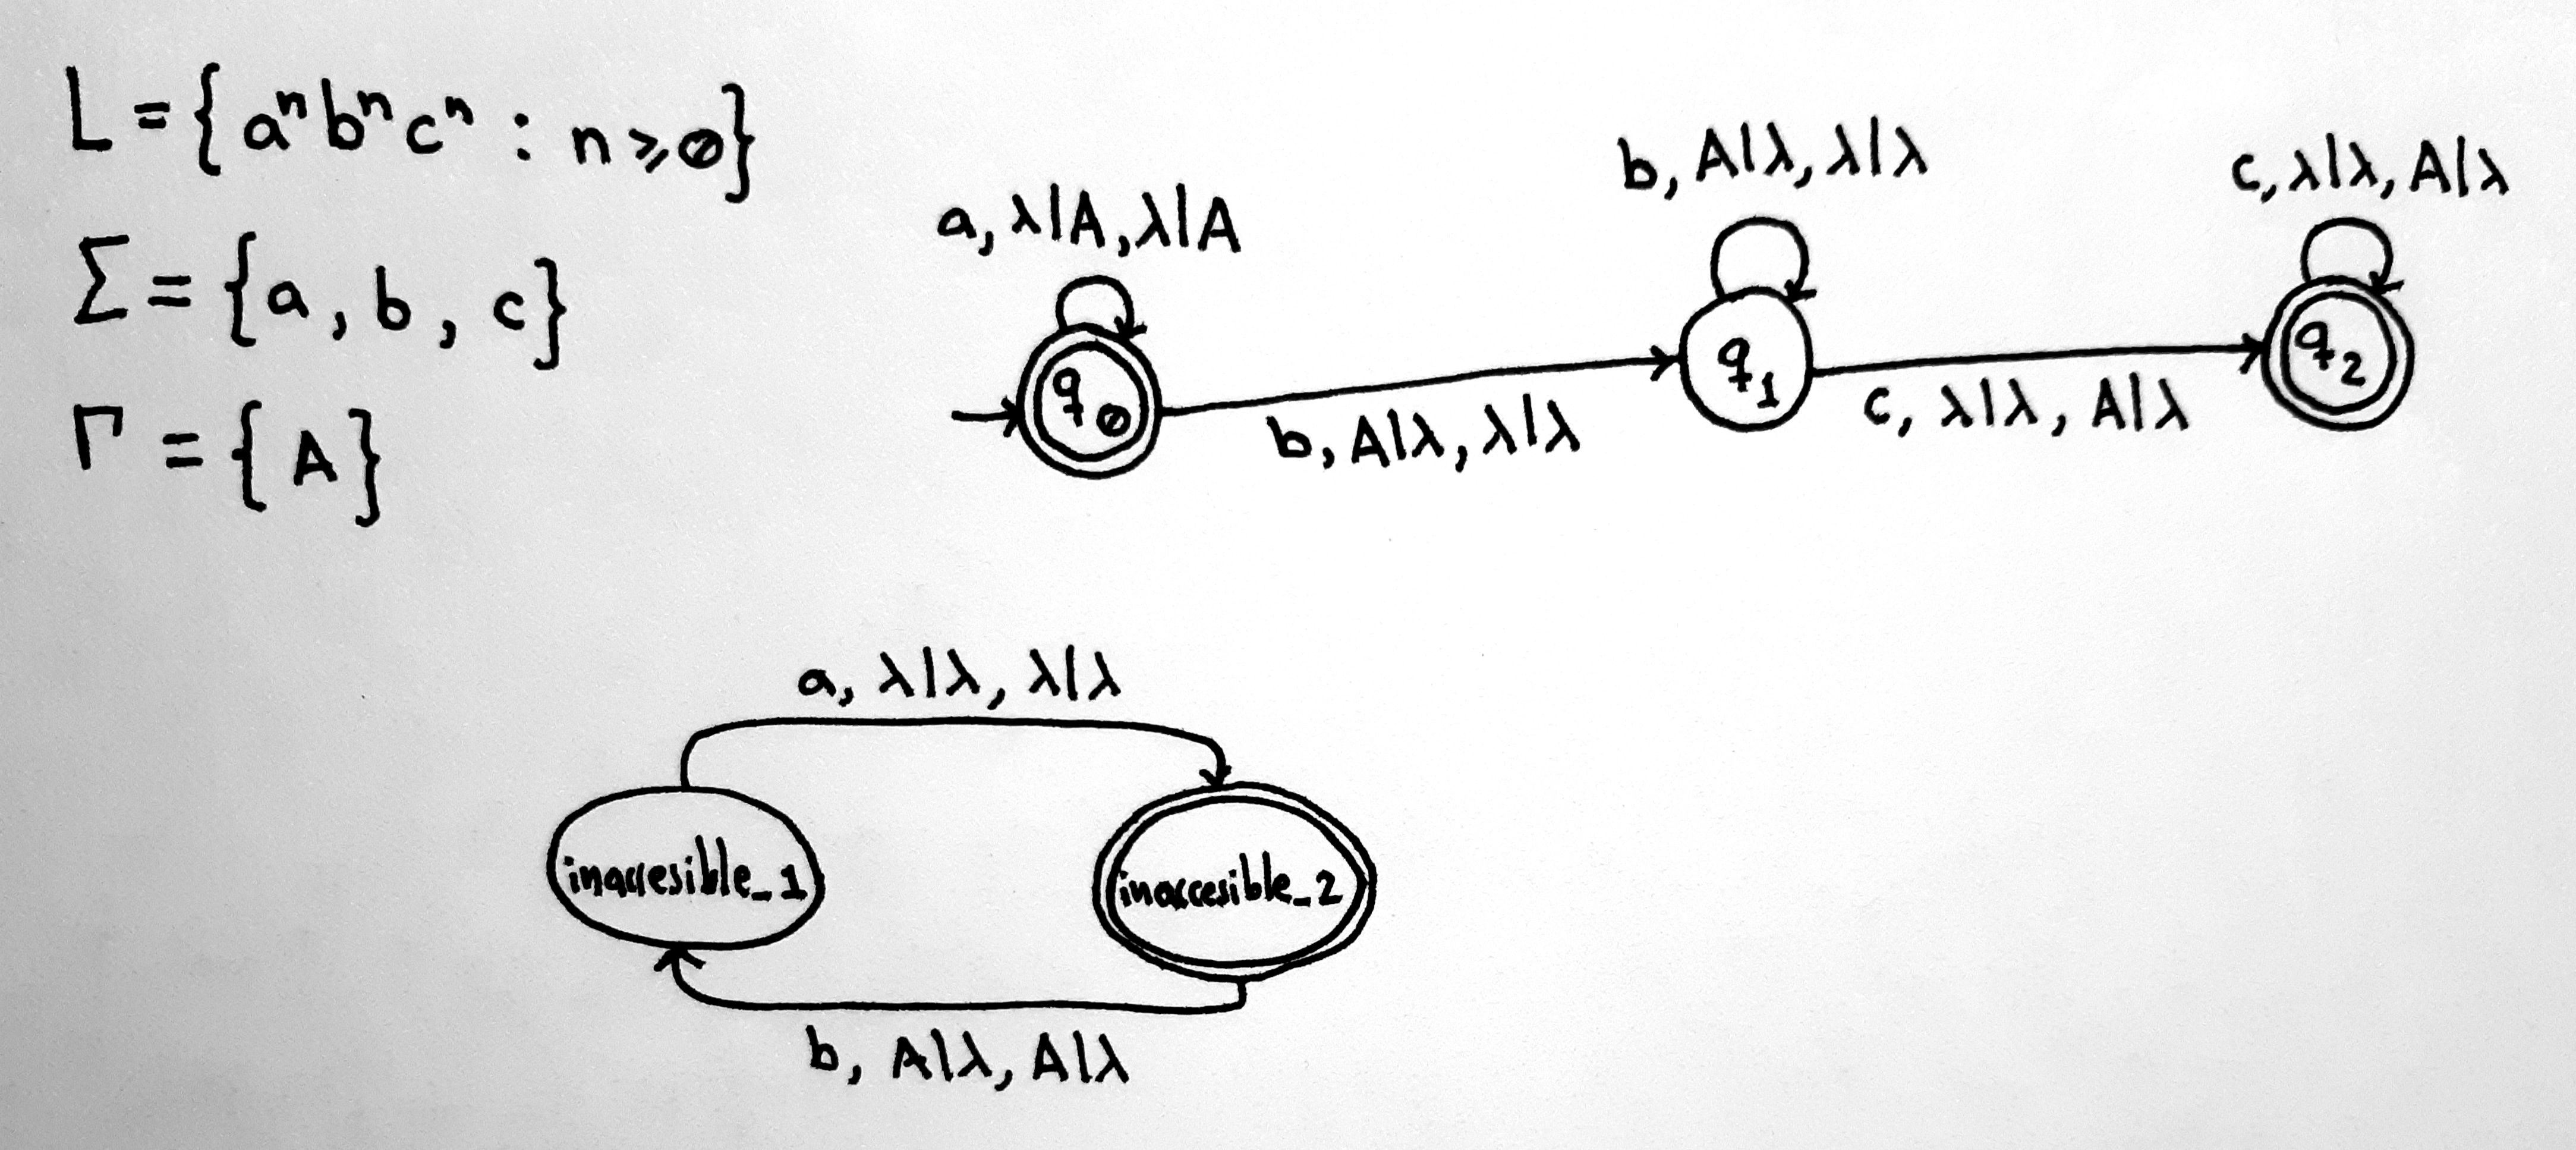 L = {aⁿbⁿcⁿ : n ⩾ 0}
Σ = {a, b, c}
Γ = {A}
a, λ|A, λ|A
q₀
b, A|λ, λ|λ
b, A|λ, λ|λ
q₁
c, λ|λ, A|λ
c, λ|λ, A|λ
q₂
a, λ|λ, λ|λ
inaccesible_1
inaccesible_2
b, A|λ, A|λ